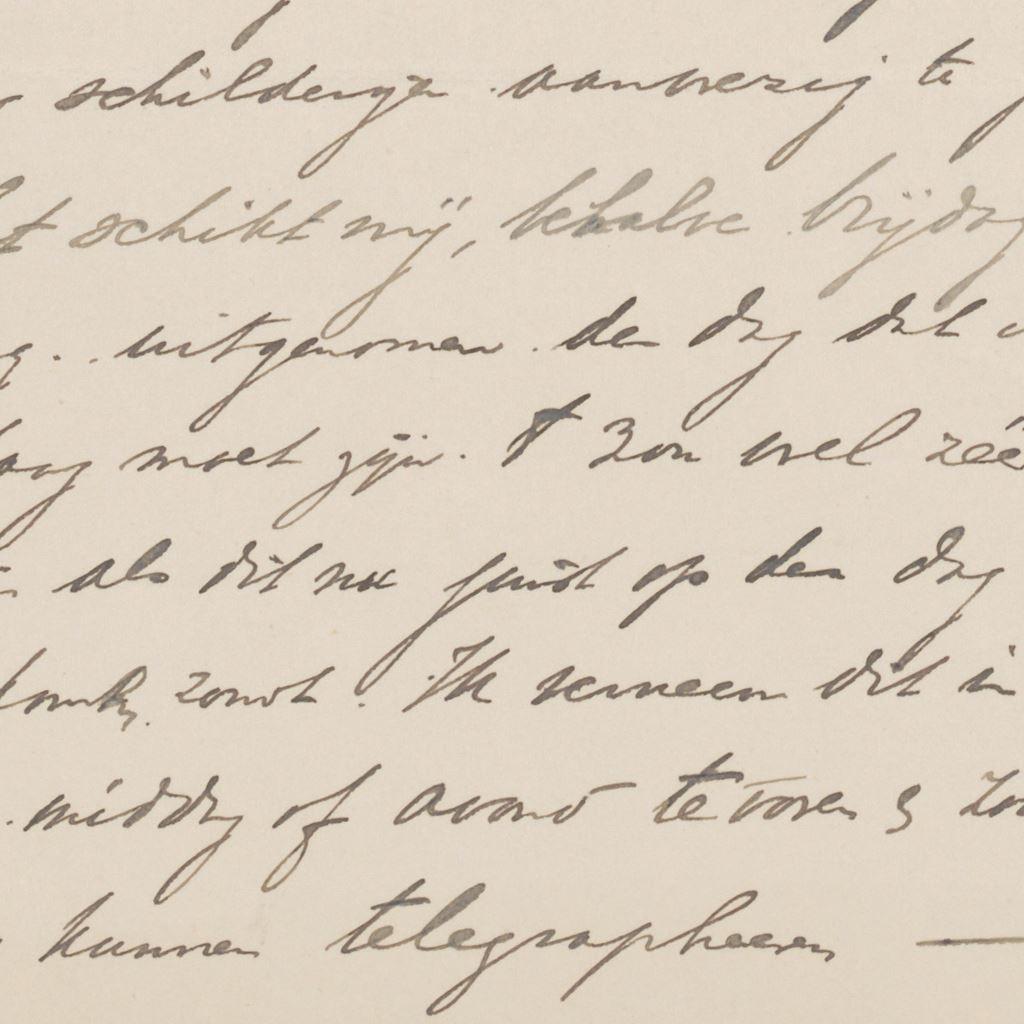 schilderyen aanwezig te
schikt mij, behalve vrijdag
uitgenomen den dag dat
moet zijn. 't zou wel zéé
als dit nu juist op den dag
komt, zondt. Ik verneem dit in
middag of avond te voren & zou
kunnen telegrapheeren —